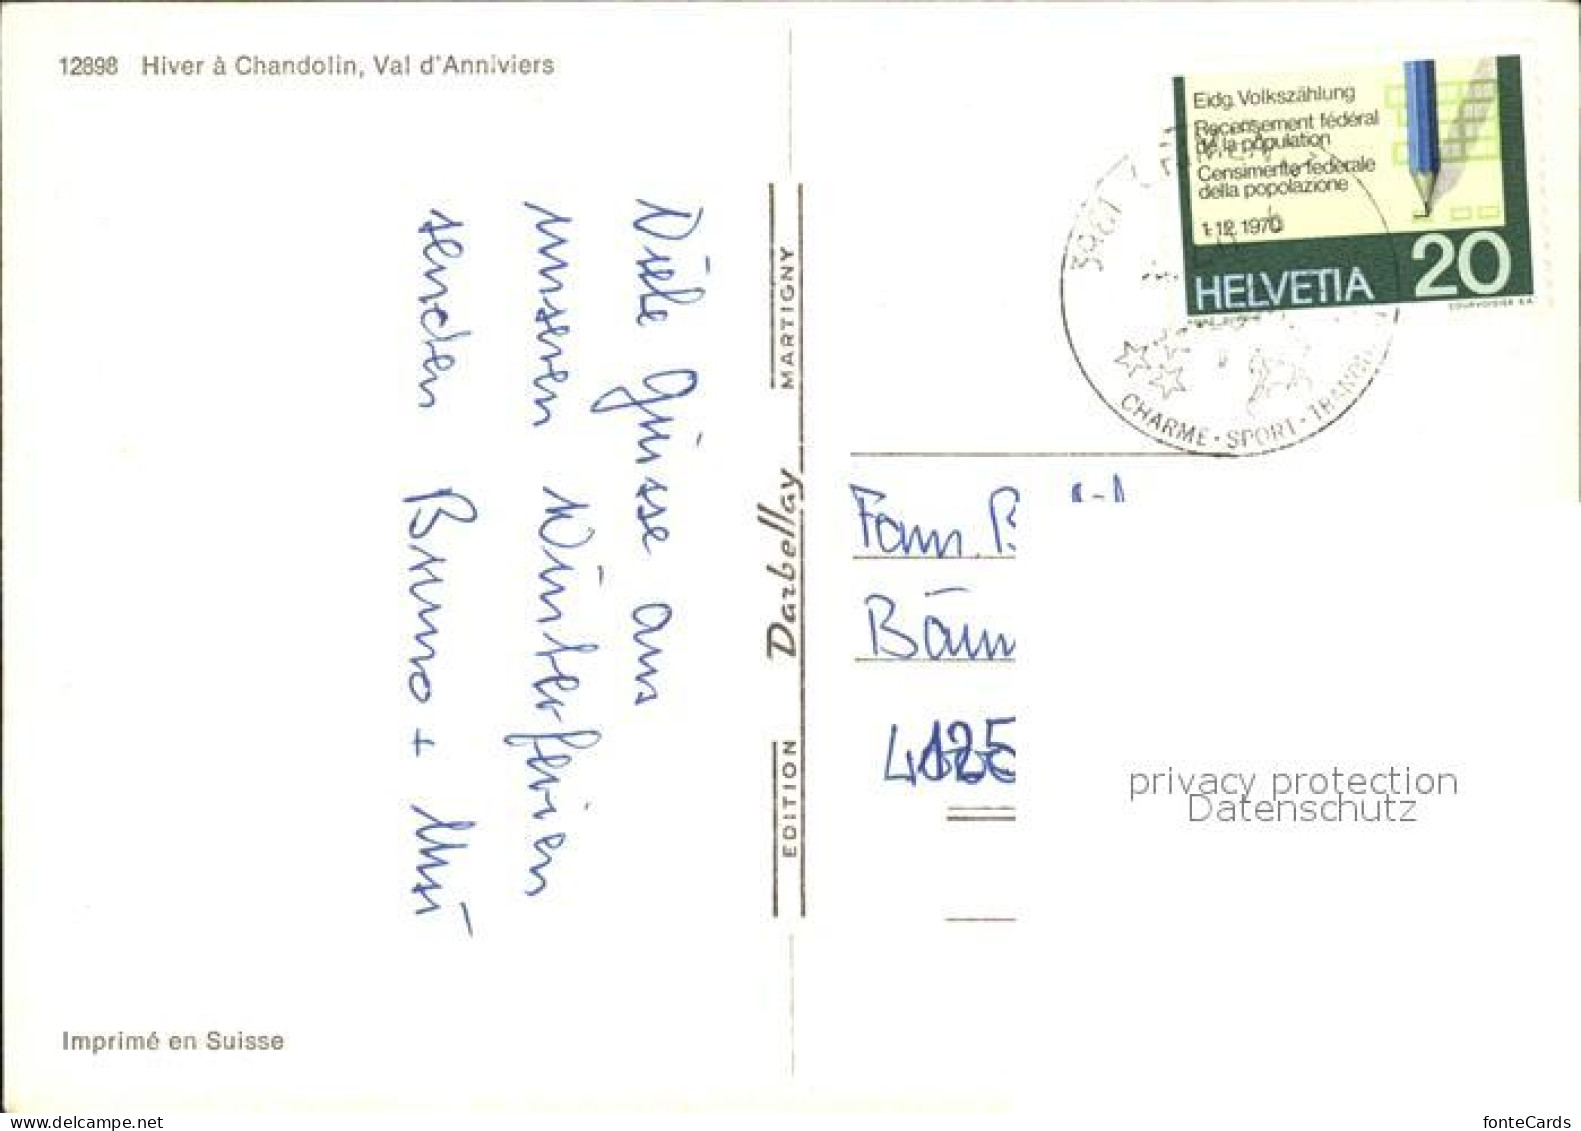 12898 Hiver à Chandolin, Val d'Anniviers
Viele Grüsse aus
unseren Winterferien
senden Bruno + Ursi
Imprimé en Suisse
EDITION Darbellay MARTIGNY
Eidg. Volkszählung
Recensement fédéral
de la population
Censimento federale
della popolazione
1.12.1970
HELVETIA 20
COURVOISIER S.A.
3961
CHARME · SPORT ·
Fam. B
Bäum
4125
privacy protection
Datenschutz
the world's greatest collectibles marketplace
fonteCards